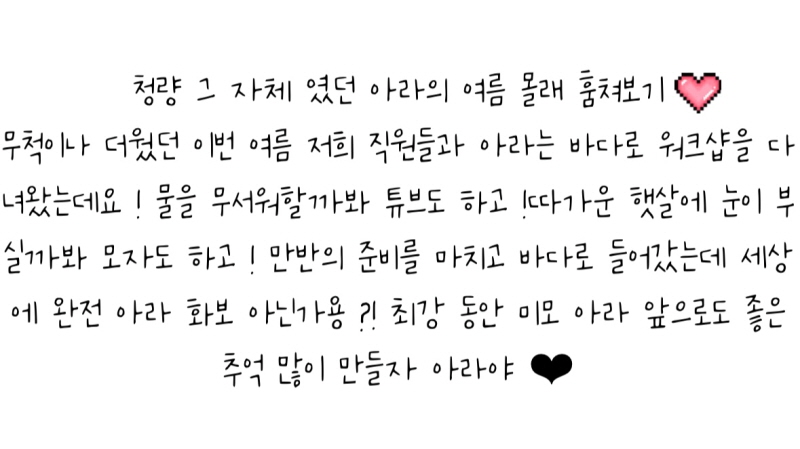 청량 그 자체 였던 아라의 여름 몰래 훔쳐보기
무척이나 더웠던 이번 여름 저희 직원들과 아라는 바다로 워크샵을 다
녀왔는데요 ! 물을 무서워할까봐 튜브도 하고 !따가운 햇살에 눈이 부
실까봐 모자도 하고 ! 만반의 준비를 마치고 바다로 들어갔는데 세상
에 완전 아라 화보 아닌가용 ?! 최강 동안 미모 아라 앞으로도 좋은
추억 많이 만들자 아라야 ❤